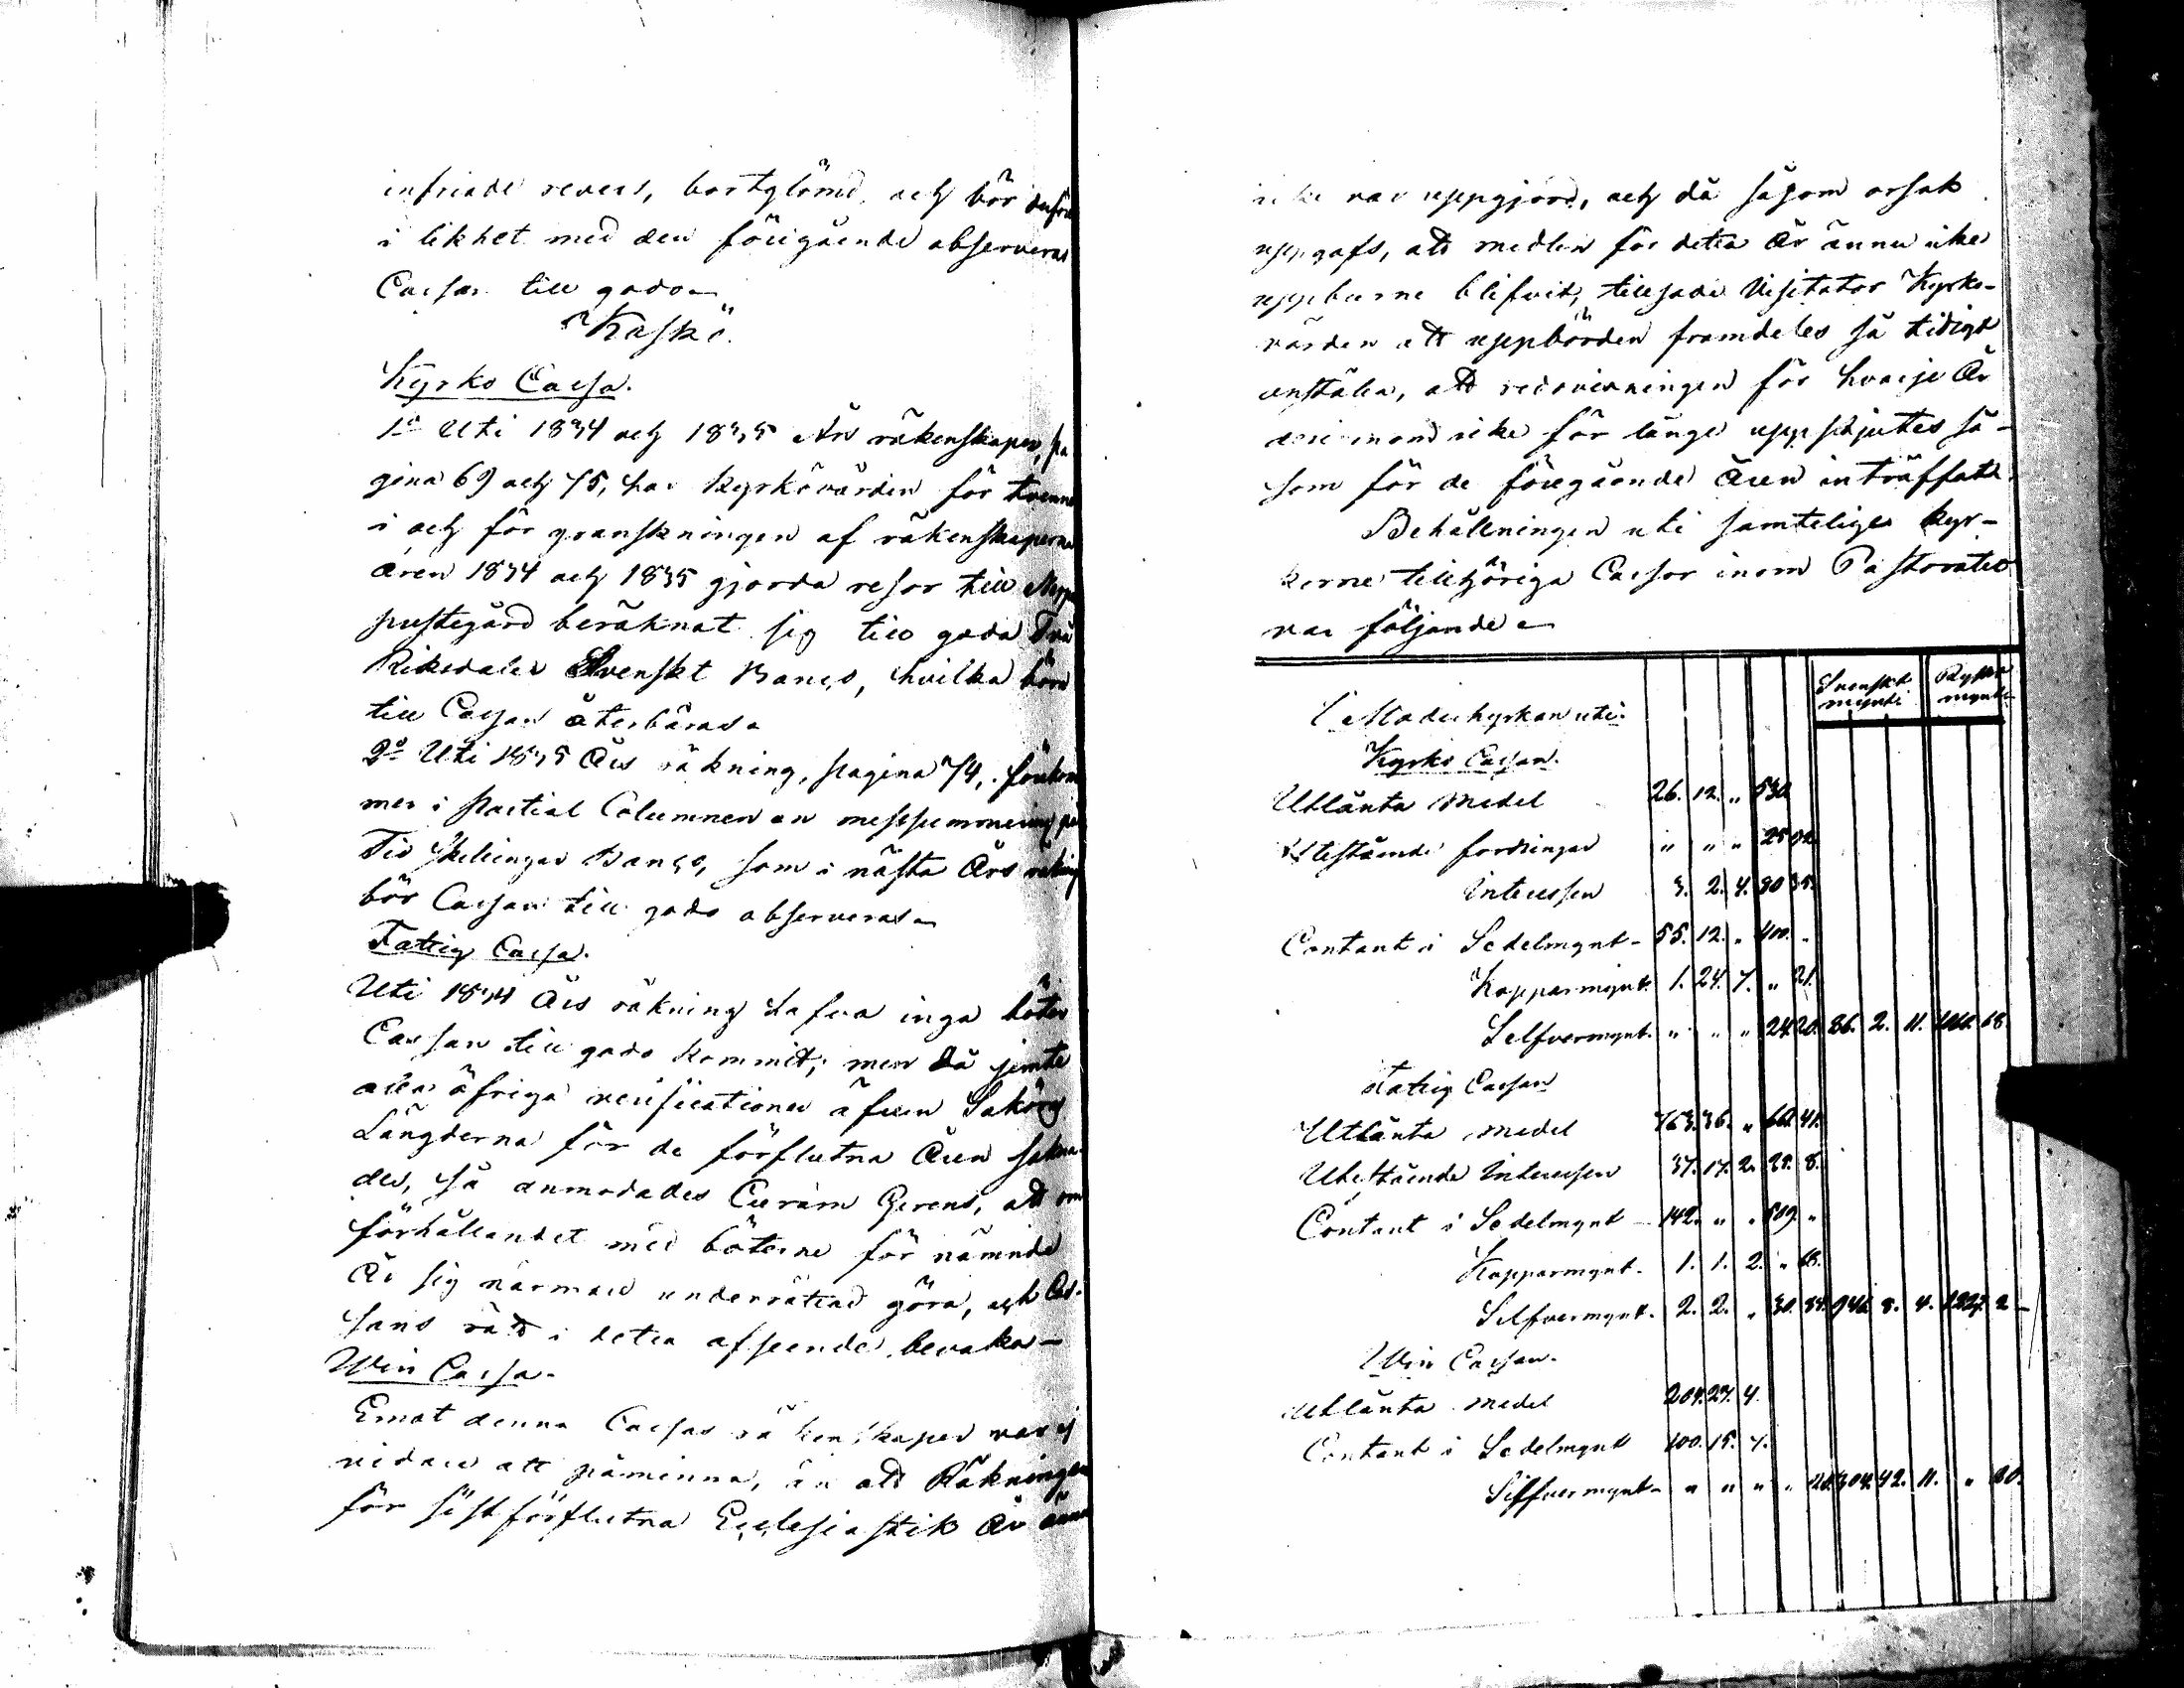 infriade revers, bortglömd, och bör derföre
i likhet med den föregående observeras
Cassan till godo
Kaskö.
Kyrko Cassa.
1o Uti 1834 och 1835 Års räkenskaper, pa
gina 69 och 75, har Kyrkovärden för tvenne
i och för granskningen af räkenskaperna
åren 1834 och 1835 gjorda resor till
prestegård beräknat sig till godo Två
Riksdaler Svenskt Banco, hvilka böra
till Cassan återbäras
2o Uti 1835 Års räkning, pagina 74, förekom
mer i Partial Columnen en missummering på
Tio Skillingar Banco, som i nästa Års räkning
bör Cassan till godo observeras
Fattig Cassa.
Uti 1834 Års räkning hafva inga böter
Cassan till godo kommit; men då jemte
alla öfriga verificationer äfven Saköres
Längderna för de förflutna Åren sakna
des, så anmodades Curam Gerens, att om
förhållandet med böterne för nämnde
År sig närmare underrättad göra, och Cas-
sans rätt i detta afseende bevaka
Win Cassa.
Emot denna Cassas räkenskaper var ej
vidare att påminna, än att Räkningen
för sistförflutna Ecclesiastik År ännu
icke var uppgjord, och då såsom orsak
uppgafs, att medlen för detta År ännu icke
uppburne blifvit, tillsade Visitator Kyrko-
värden att uppbörden framdeles så tidigt
anställa, att redovisningen för hvarje År
icke för länge uppskjutes så-
som för de föregående Åren inträffat.
Behållningen uti samtelige kyr-
korne tillhöriga Cassor inom Pastoratet
var följande
Svenskt mynt. Ryskt mynt.
I Moderkyrkan uti
Kyrko Cassan.
Utlånta Medel 26. 12. " 530
Utestående fordringar " " " 25 92
Interessen 3. 2. 4. 80 35.
Contant i Sedelmynt 55. 12. " 400. "
Kopparmynt. 1. 24. 7. " 21.
Selfvermynt. " " " 24 20. 86. 2. 11. 68.
Fattig Cassan
Utlånta medel 763. 36. " 660. 41.
Utestående Interessen 37. 17. 2. 25. 8.
Contant i Sedelmynt 142. " " 609. "
Kopparmynt. 1. 1. 2. " 68.
Selfvermynt. 2. 2. " 30. 84. 946. 8. 4. 1327. 2
Win Cassan.
Utlånta medel 204. 27. 4.
Contant i Sedelmynt 100. 15. 7.
Silfvermynt " " " " 20. 304. 42. 11. " 20.